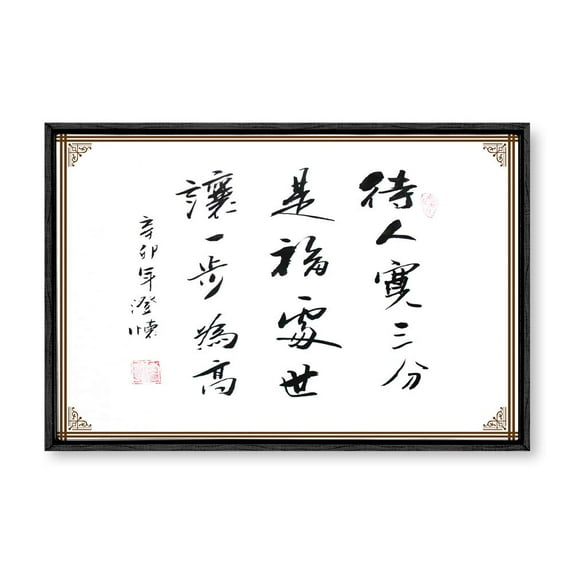 待人寬三分
是福處世
讓一步為高
辛卯年澄懷